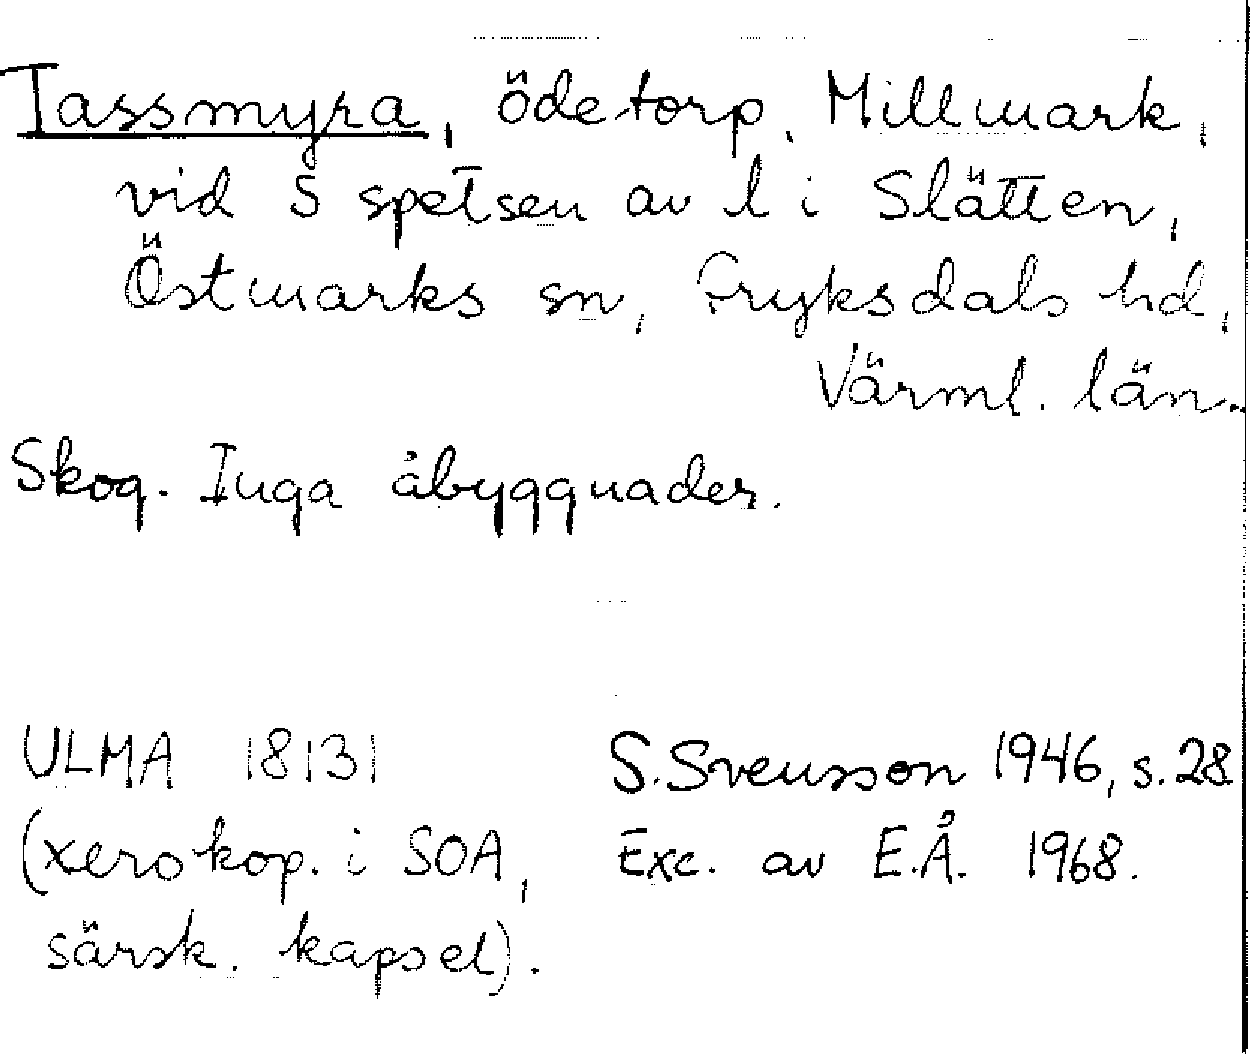 Tassmyra, ödetorp, Millmark,
vid S spetsen av l i Slätten,
Östmarks sn, Fryksdals hd,
Värml. län.
Skog. Inga åbyggnader.
ULMA 18131 S. Svensson 1946, s. 28
(xerokop. i SOA, Exc. av E.Å. 1968.
särsk. kapsel).